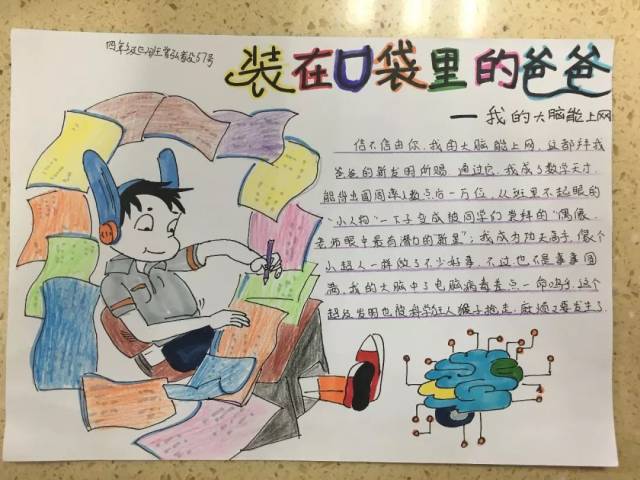 装在口袋里的爸爸
—我的大脑能上网
信不信由你,我的大脑能上网,这都拜我
爸爸的新发明所赐。通过它,我成了数学天才,
能背出圆周率小数点后一万位,从班里不起眼的
“小人物”一下子变成被同学们崇拜的“偶像、
老师眼中最有潜力的新星”;我成为功夫高手,像个
小超人一样做了不少好事。不过也不是事事圆
满,我的大脑中了电脑病毒差点一命呜呼,这个
超级发明也被科学狂人猴子抢走,麻烦又要发生了